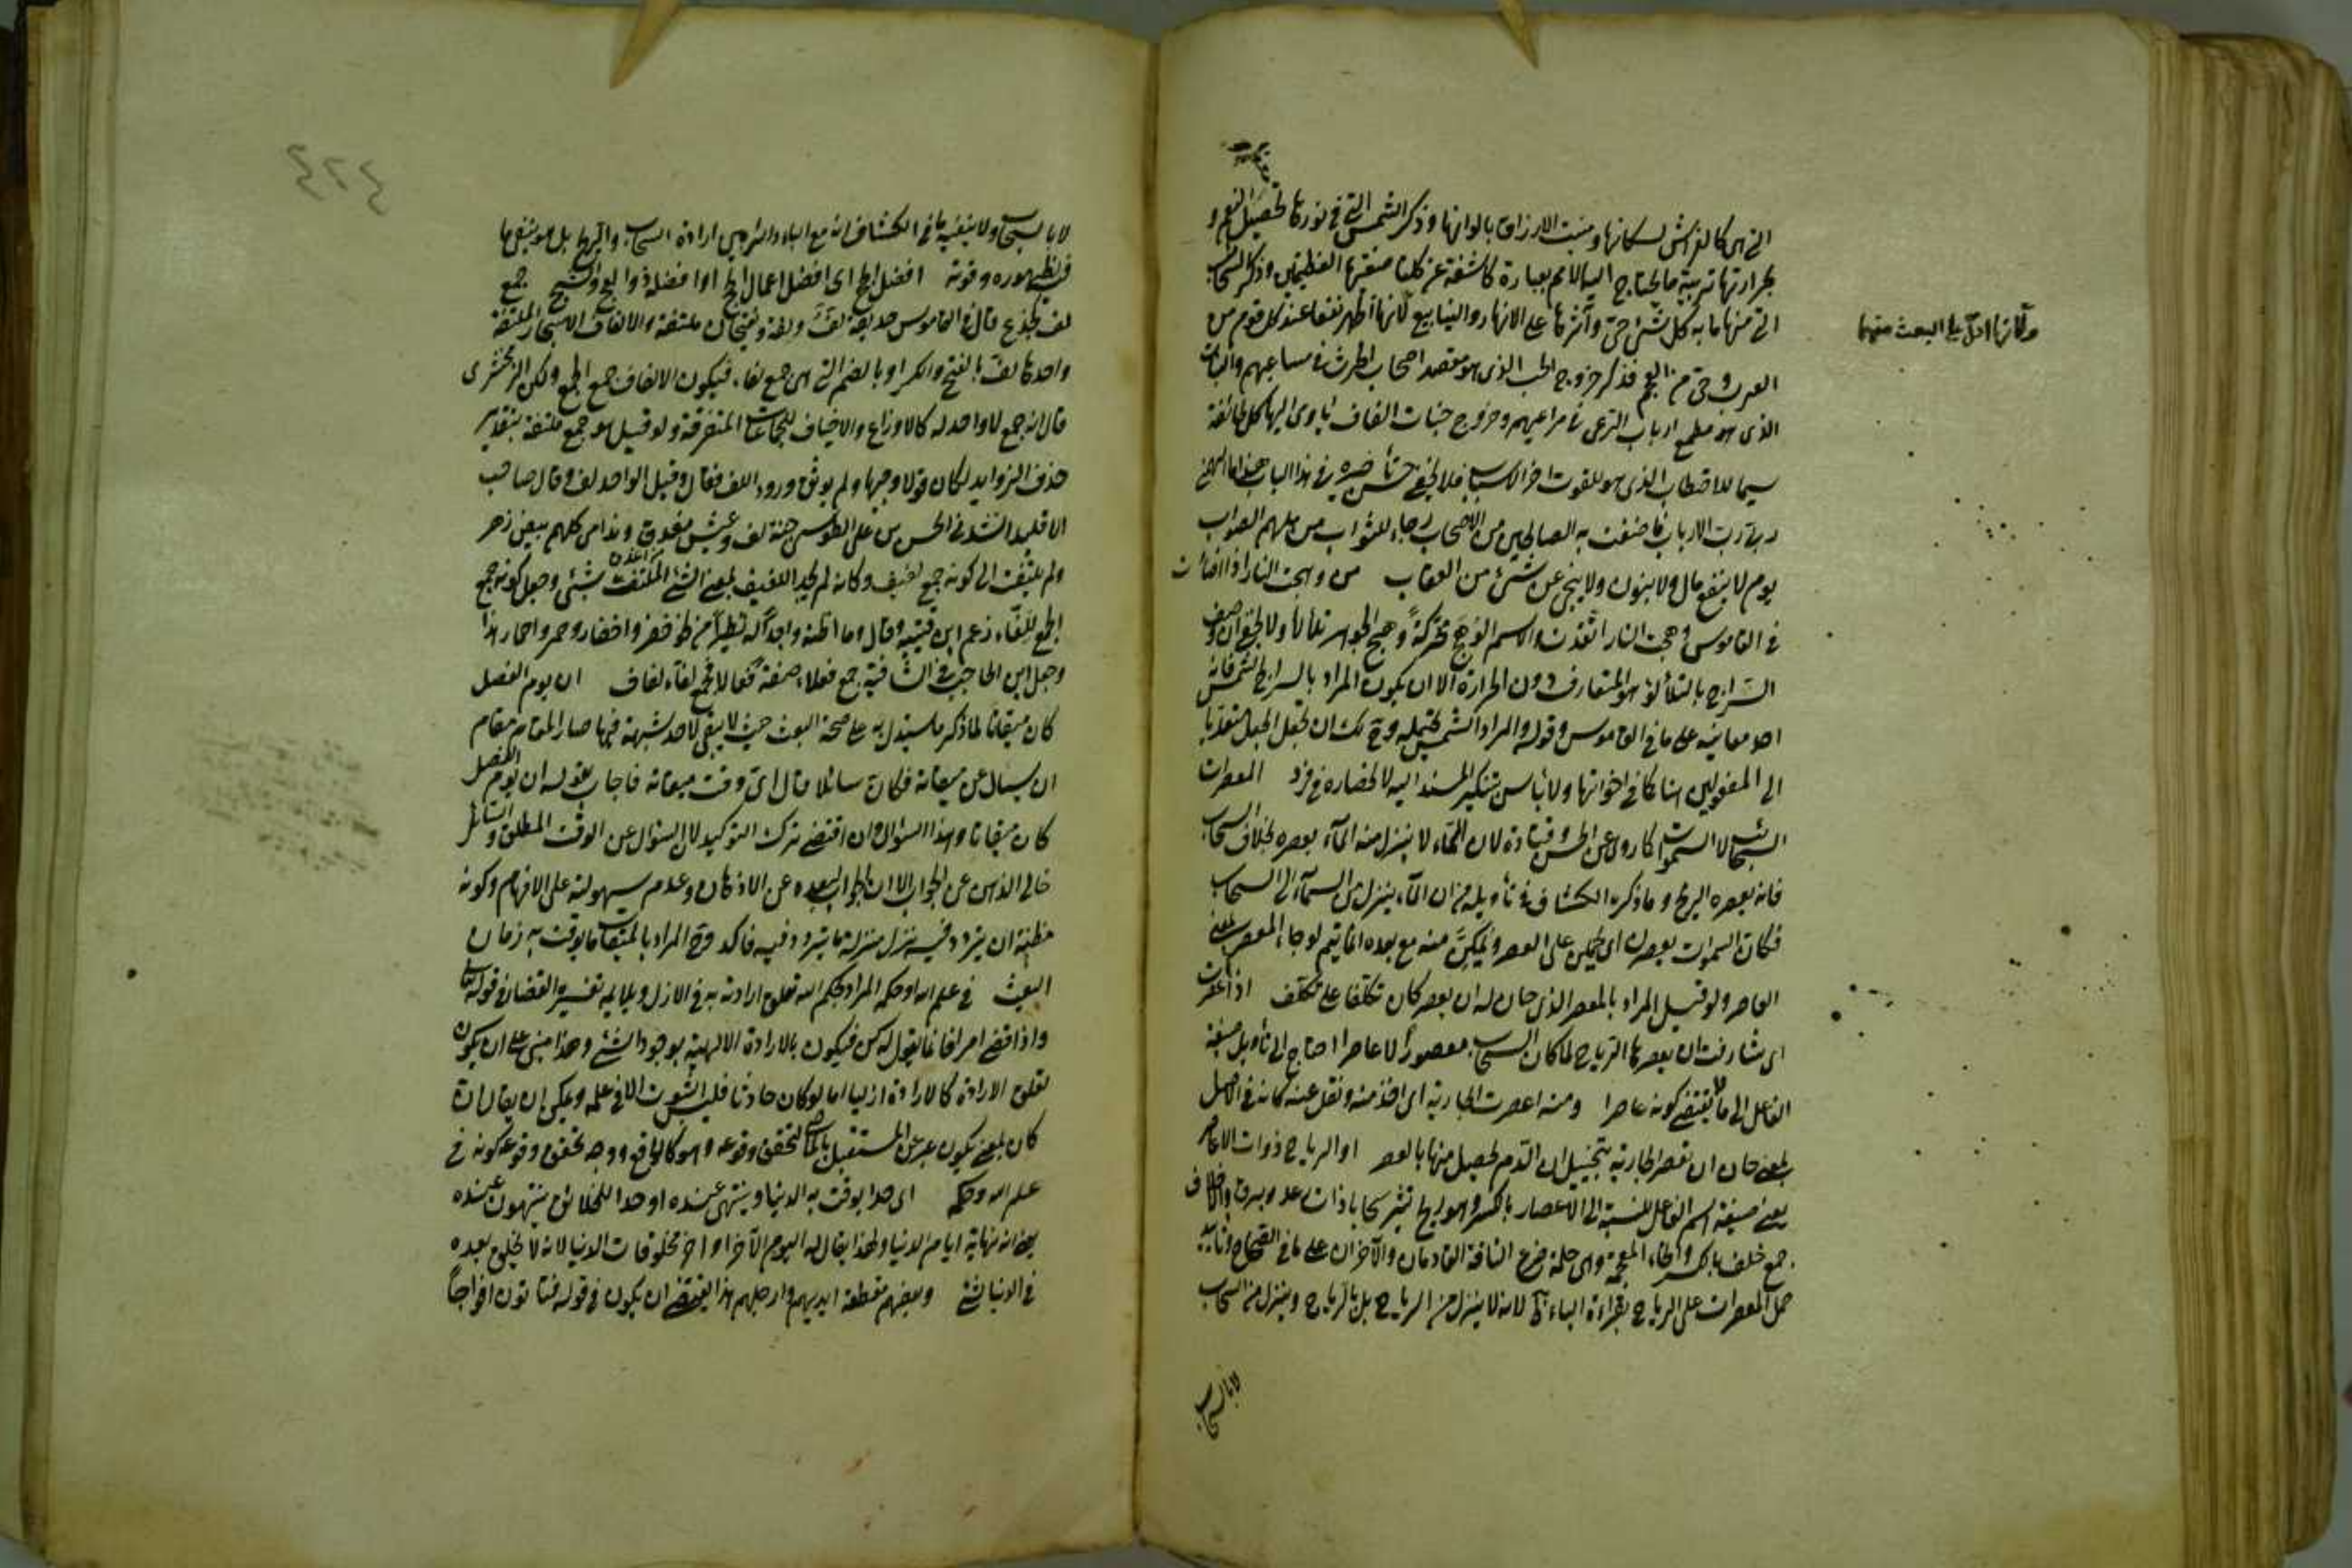 التي هي كالفراش لسكانها ومنبت الارزاق بالوانها وذكر الشمس التي في نورها تحصيل النعم و
بحرارتها تربية ما يحتاج اليه الانام بعبارة كاشفة عن كلتا صفتيها العظيمتين وذكر السحاب
التي منها ماء به كل شئ حي وآثرها على الانهار والينابيع لانها اظهر نفعا عند كل قوم من
العرب حتى من العجم فذكر خروج الحب الذي هو مقصد اصحاب الحرث في مساعيهم والنبات
الذي هو مطمح ارباب الرعي في مراعيهم وخروج جنات الفاف ياوي اليها كل طائفة
سيما للاحتطاب الذي هو للقوت اخر الاسباب فلا يخفى حسن تأخيره في هذا الباب هذا ما الهمني
ربي رب الارباب فاضفت به الصالحين من الاصحاب رجاء للثواب من ملهم الصواب
يوم لا ينفع مال ولا بنون ولا ينجي عن شئ من العقاب من وهجت النار اذا اضاءت
في القاموس وهجت النار اتقدت والاسم الوهج محركة وهج الجوهر تلألأ ولا يخفى ان وصف
السراج بالتلألؤ هو المتعارف دون الحرارة الا ان يكون المراد بالسراج الشمس فانه
احد معانيه على ما في القاموس وقوله والمراد الشمس يحتمله وح لك ان تجعل الجعل متعديا
الى المفعولين هنا كما في اخواتها ولا بأس بتنكير المسند اليه لانحصاره في فرد المعصرات
السحائب لا السموات كما روي عن الحسن وقتادة لان السماء لا ينزل منه الماء بعصره بخلاف السحاب
فانه يعصره الريح وما ذكره الكشاف في تأويله من ان الماء ينزل من السماء الى السحاب
فكان السموات يعصرن اي يحملن على العصر ويمكن منه مع بعده انما يتم لو جاء المعصر بمعنى
العاصر ولو قيل المراد بالمعصر الذي حان له ان يعصر كان تكلفا على تكلف اذا اعصرت
اي شارفت ان يعصرها الرياح لما كان السحاب معصورا لا عاصرا احتاج الى تأويل صيغة
الفاعل الى ما لا يقتضي كونه عاصرا ومنه اعصرت الجارية اي اخذ منه ونقل عنه كانه في الاصل
بمعنى حان ان تعصر الجارية بتخييل ان الدم يحصل منها بالعصر او الرياح ذوات الاعاصر
يعني صيغة اسم الفاعل للنسبة الى الاعصار بالكسر وهو ريح تثير سحابا ذات رعد وبرق والاخلاف
جمع خلف بالكسر والخاء المعجمة وهي حلمة ضرع الناقة القادمان والآخران على ما في الصحاح وتأييد
حمل المعصرات على الرياح بقراءة الباء لانه لا ينزل من الرياح بل بالرياح وينزل من السحاب
لا بالسحاب
وكأنها ادل على البعث منهما
٤٢٤
لا بالسحاب ولا ينفيه ما في الكشاف انه مع الباء والنزول ارادة السحاب والريح بل هو ينفيها
فيظهوره وقوته افضل الحج اي افضل اعمال الحج او افضله ذو العج والثج جمع
لف كجذع قال في القاموس حديقة لف ولفة ويفتحان ملتفة والالفاف الاشجار الملتفة
واحدها لف بالفتح والكسر او بالضم التي هي جمع لفاء فيكون الالفاف جمع الجمع ولكن الزمخشري
قال انه جمع لا واحد له كالاوزاع والاخياف للجماعات المتفرقة ولو قيل هو جمع ملتفة بتقدير
حذف الزوايد لكان قولا وجيها ولم يوثق ورود اللف فقال وقيل الواحد لف وقال صاحب
الاقليد انشدني الحسن بن علي الطوسي جنة لف وعيش مغدق وندامى كلهم بيض زهر
ولم يلتفت الى كونه جمع لفيف وكانه لم يجد اللفيف بمعنى الشئ الملتف بشئ وجعل كونه جمع
الجمع للفاء زعم ابن قتيبة وقال وما اظنه واجدا له نظيرا من نحو خضر واخضار وحمر واحمار هذا
وجعل ابن الحاجب في الشافية جمع فعلاء صفة فعالا فجمع لفاء لفاف ان يوم الفصل
كان ميقاتا لما ذكر ما يستدل به على صحة البعث حيث لا يبقى لاحد شبهة فيها صار المقام مقام
ان يسأل عن ميقاته فكان سائلا قال اي وقت ميقاته فاجاب بقوله ان يوم الفصل
كان ميقاتا وهذا السؤال وان اقتضى ترك التوكيد لان السؤال عن الوقت المطلق والسائل
خالي الذهن عن الجواب الا ان الجواب لبعده عن الاذهان وعدم سهولته على الافهام وكونه
مظنة ان يتردد فيه نزل منزلة ما يتردد فيه فاكد وح المراد بالميقات ما يوقت به زمان
البعث في علم الله او حكمه المراد بحكم الله تعلق ارادته به في الازل ويلايمه تفسير القضاء في قوله تعالى
واذا قضى امرا فانما يقول له كن فيكون بالارادة الالهية بوجود الشئ وهذا مبني على ان يكون
تعلق الارادة كالارادة ازليا اما لو كان حادثا فليس الثبوت الا في علمه ويمكن ان يقال ان
كان بمعنى يكون عبر عن المستقبل بالماضي لتحقق وقوعه وهو كالواقع ووجه تحقق وقوعه كونه في
علم الله وحكمه اي حدا يوقت به الدنيا وينتهي عنده او حدا للخلائق ينتهون عنده
يعني انه نهاية ايام الدنيا ولهذا يقال له اليوم الآخر او آخر مخلوقات الدنيا لانه لا يخلق بعده
في الدنيا شئ وبعضهم مقطعة ايديهم وارجلهم هذا يقتضي ان يكون في قوله فتأتون افواجا